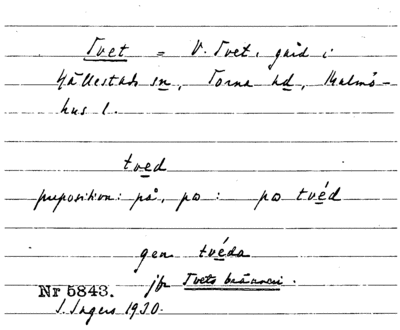 Tvet = V. Tvet, gård i
Hällestads sn, Torna hd, Malmö-
hus l.
tved
preposition: på, pω : pω tvéd
gen tvéda
jfr Tvets bränneri.
Nr 5843.
I. Ingers 1930.